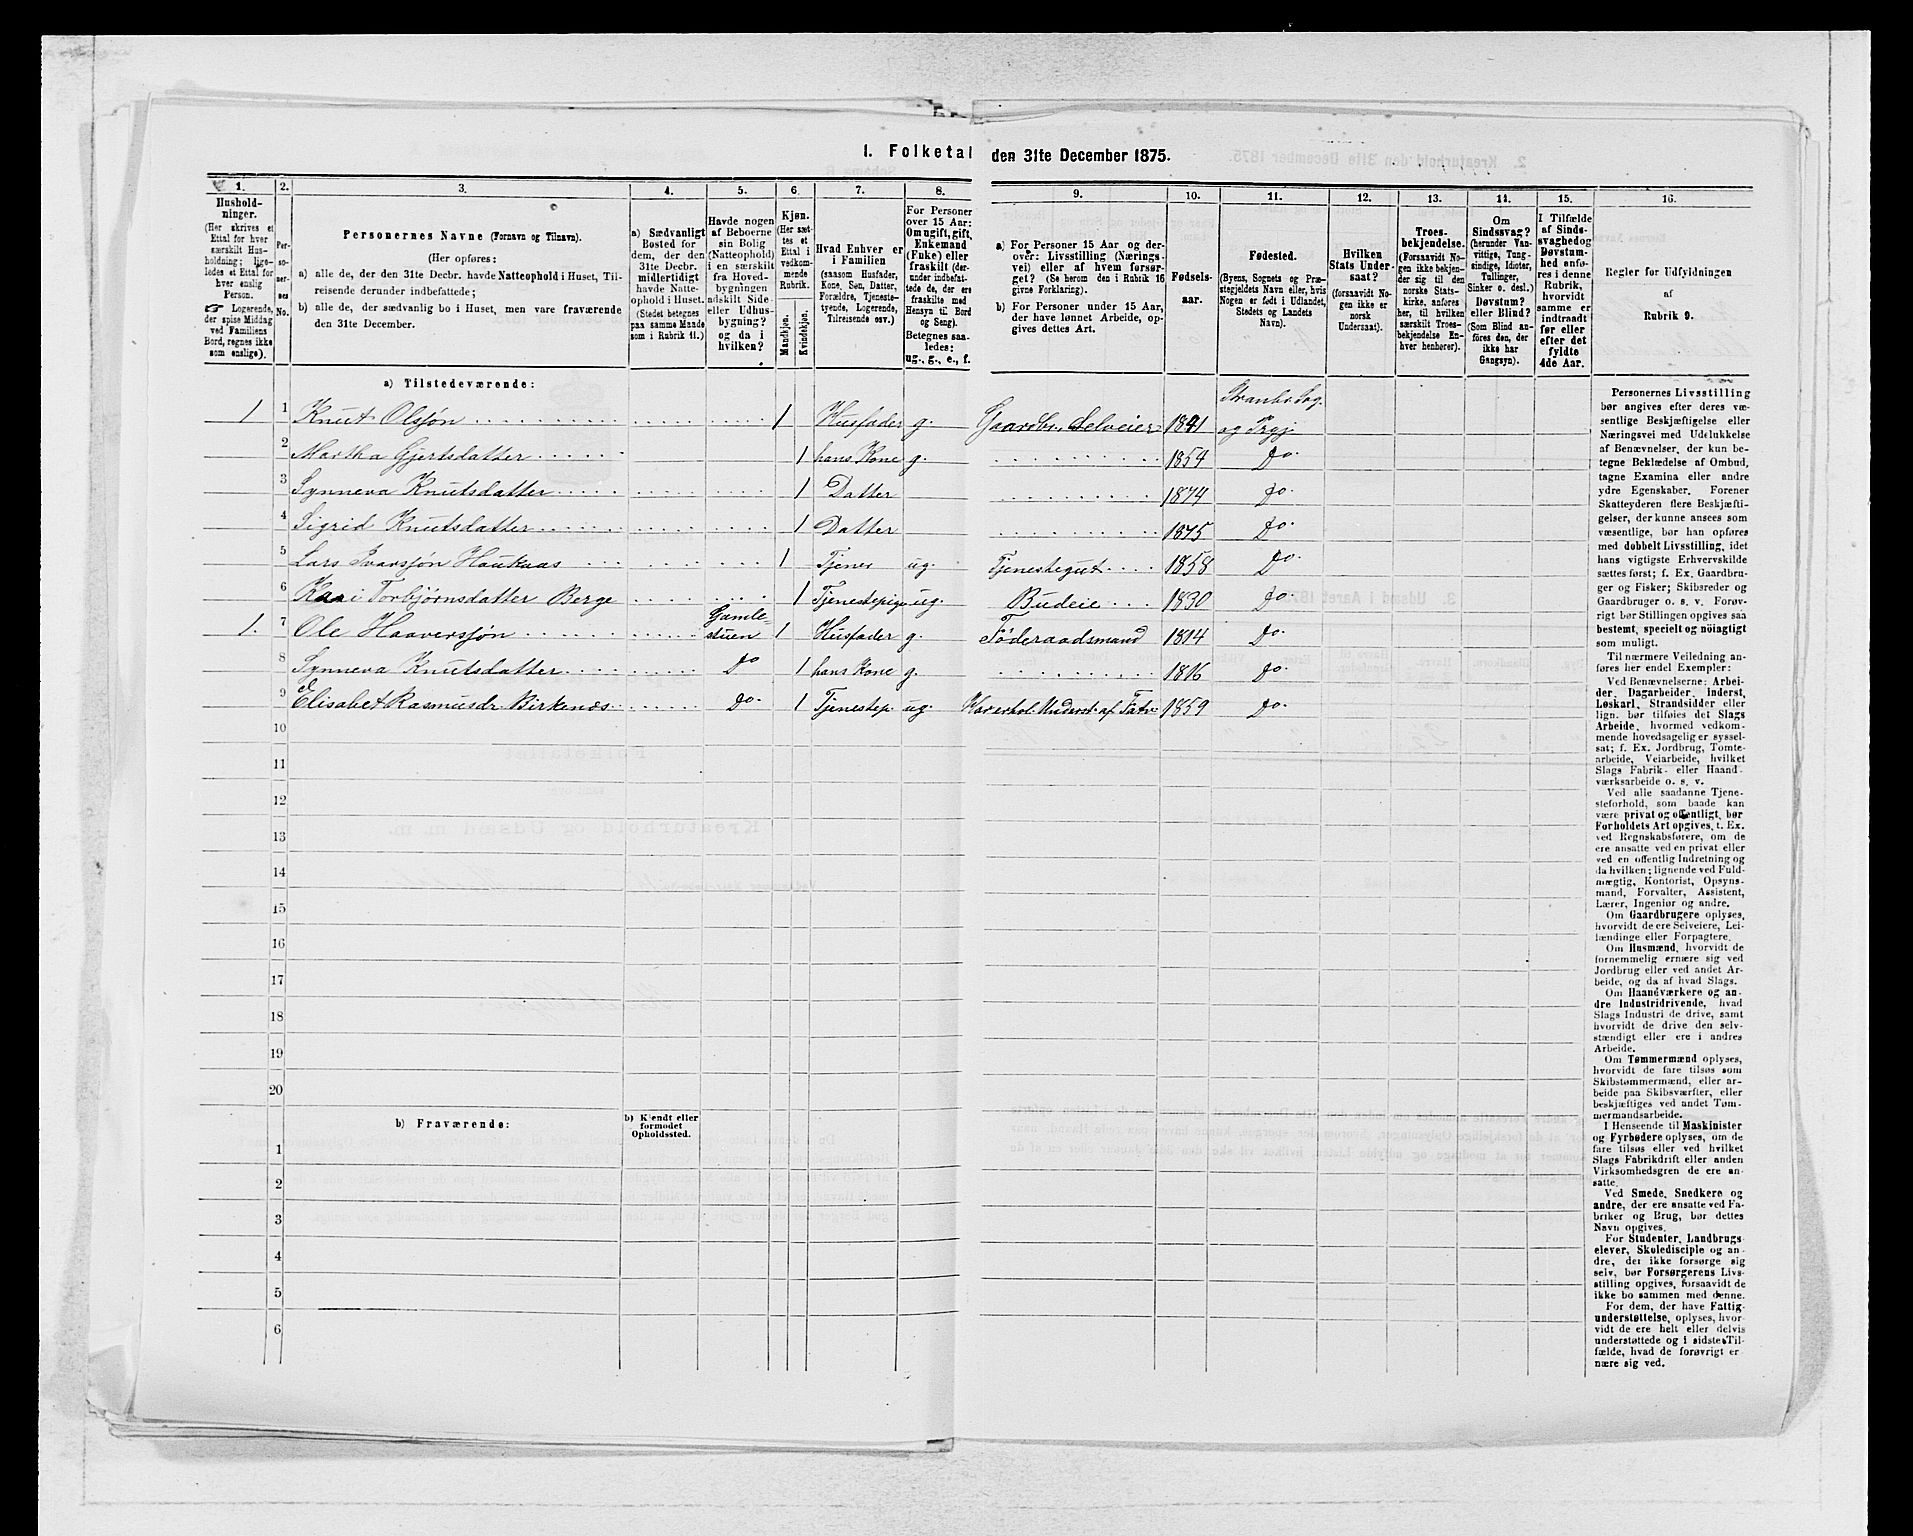 1. Folketal den 31te December 1875.
1.
Hushold-
ninger.
(Her skrives et
Ettal for hver
særskilt Hus-
holdning; lige-
ledes et Ettal for
hver enslig
Person.
☞ Logerende,
der spise Middag
ved Familiens
Bord, regnes ikke
som enslige).
2.
Per-
so-
ner-
nes
No.
3.
Personernes Navne (Fornavn og Tilnavn).
(Her opføres:
a) alle de, der den 31te Decbr. havde Natteophold i Huset, Til-
reisende derunder indbefattede;
b) alle de, der sædvanlig bo i Huset, men vare fraværende
den 31te December.
4.
a) Sædvanligt
Bosted for
dem, der den
31te Decbr.
midlertidigt
havde Natte-
ophold i Huset.
(Stedet betegnes
paa samme Maade
som i Rubrik 11.)
5.
Havde nogen
af Beboerne
sin Bolig
(Natteophold)
i en særskilt
fra Hoved-
bygningen
adskilt Side-
eller Udhus-
bygning?
og da i
hvilken?
6.
Kjøn.
(Her sæt-
tes et
Ettal i
vedkom-
mende
Rubrik.
Mandkjøn.
Kvindekjøn.
7.
Hvad Enhver er
i Familien
(saasom Husfader,
Kone, Søn, Datter,
Forældre, Tjeneste-
tyende, Logerende,
Tilreisende osv.)
8.
For Personer
over 15 Aar:
Om ugift, gift,
Enkemand
(Enke) eller
fraskilt (der-
under indbefat-
tede de, der ere
fraskilte med
Hensyn til Bord
og Seng).
Betegnes saa-
ledes:
ug., g., e., f.
9.
a) For Personer 15 Aar og der-
over: Livsstilling (Nærings-
vei) eller af hvem forsør-
get? (Se herom den i Rubrik 16
givne Forklaring).
b) For Personer under 15 Aar,
der have lønnet Arbeide, op-
gives dettes Art.
10.
Fødsels-
aar.
11.
Fødested.
(Byens, Sognets og Præ-
stegjeldets Navn eller, hvis
Nogen er født i Udlandet,
Stedets og Landets
Navn).
12.
Hvilken
Stats Under-
saat?
(forsaavidt No-
gen ikke er
norsk
Undersaat).
13.
Troes-
bekjendelse.
(Forsaavidt No-
gen ikke bekjen-
der sig til den
norske Stats-
kirke, anføres
her, til hvilken
særskilt Troes-
bekjendelse En-
hver henhører).
14.
Om
Sindssvag?
(herunder Van-
vittige, Tung-
sindige, Idioter,
Tullinger,
Sinker o. desl.)
Døvstum?
eller Blind?
(Som Blind an-
føres den, der
ikke har
Gangsyn).
15.
I Tilfælde
af Sinds-
svaghed og
Døvstum-
hed anfø-
res i denne
Rubrik,
hvorvidt
samme er
indtraadt
før eller
efter det
fyldte
4de Aar.
16.
Regler for Udfyldningen
af
Rubrik 9.
a) Tilstedeværende:
1 1 Knut Olssøn 1 Husfader g. Gaardbr. Selveier 1841 Stranbr. Sog. og Prgj
2 Martha Gjertsdatter 1 hans Kone g. 1854 Do.
3 Synneva Knutsdatter 1 Datter 1874 Do.
4 Sigrid Knutsdatter 1 Datter 1875 Do.
5 Lars Ivarssøn Haukaas 1 Tjener ug. Tjenestegut 1858 Do
6 Kari Torbjørnsdatter Berge 1 Tjenestepige ug. Budeie 1830 Do
1. 7 Ole Haaverssøn Gamle-stuen 1 Husfader g. Föderaadsmand 1814 Do.
8 Synneva Knutsdatter Do 1 hans Kone g. 1816 Do.
9 Elisabet Rasmusdr Birkenæs Do. 1 Tjenestep. ug. Underst. af Fatv. 1859 Do.
10
11
12
13
14
15
16
17
18
19
20
b) Fraværende:
b) Kjendt eller
formodet
Opholdssted.
1
2
3
4
5
6
Personernes Livsstilling
bør angives efter deres væ-
sentlige Beskjæftigelse eller
Næringsvei med Udelukkelse
af Benævnelser, der kun be-
tegne Beklædelse af Ombud,
tagne Examina eller andre
ydre Egenskaber. Forener
Skatteyderen flere Beskjæfti-
gelser, der kunne ansees som
væsentlige, bør han opføres
med dobbelt Livsstilling, idet
hans vigtigste Erhvervskilde
sættes først; f. Ex. Gaardbru-
ger og Fisker; Skibsreder og
Gaardbruger o. s. v. Forøv-
rigt bør Stillingen opgives saa
bestemt, specielt og nøiagtigt
som muligt.
Til nærmere Veiledning an-
føres her endel Exempler:
Ved Benævnelserne: Arbei-
der, Dagarbeider, Inderst,
Løskarl, Strandsidder eller
lign. bør tilføies det Slags
Arbeide, hvormed vedkom-
mende hovedsagelig er syssel-
sat; f. Ex. Jordbrug, Tomte-
arbeide, Veiarbeide, hvilket
Slags Fabrik- eller Haand-
værksarbeide o. s. v.
Ved alle saadanne Tjene-
steforhold, som baade kan
være privat og offentligt, bør
Forholdets Art opgives, t. Ex.
ved Regnskabsførere, om de
ere ansatte ved en privat eller
ved en offentlig Indretning og
da hvilken; lignende ved Fuld-
mægtig, Kontorist, Opsyns-
mand, Forvalter, Assistent,
Lærer, Ingeniør og andre.
Om Gaardbrugere oplyses,
hvorvidt de ere Selveiere, Lei-
lændinge eller Forpagtere.
Om Husmænd, hvorvidt de
fornemmelig ernære sig ved
Jordbrug eller ved andet Ar-
beide, og da af hvad Slags.
Om Haandværkere og an-
dre Industridrivende, hvad
Slags Industri de drive, samt
hvorvidt de drive den selv-
stændigt eller ere i andres
Arbeide.
Om Tømmermænd oplyses,
hvorvidt de fare tilsøs som
Skibstømmermænd, eller ar-
beide paa Skibsværfter, eller
beskjæftiges ved andet Tøm-
mermandsarbeide.
I Henseende til Maskinister
og Fyrbødere oplyses, om de
fare tilsøs eller ved hvilket
Slags Fabrikdrift eller anden
Virksomhedsgren de ere an-
satte.
Ved Smede, Snedkere og
andre, der ere ansatte ved Fa-
briker og Brug, bør dettes
Navn opgives.
For Studenter, Landbrugs-
elever, Skoledisciple og an-
dre, der ikke forsørge sig
selv, bør Forsørgerens Livs-
stilling opgives, forsaavidt de
ikke bo sammen med denne.
For dem, der have Fattig-
understøttelse, oplyses, hvor-
vidt de ere helt eller delvis
understøttede og i sidste Til-
fælde, hvad de forøvrigt er-
nære sig ved.